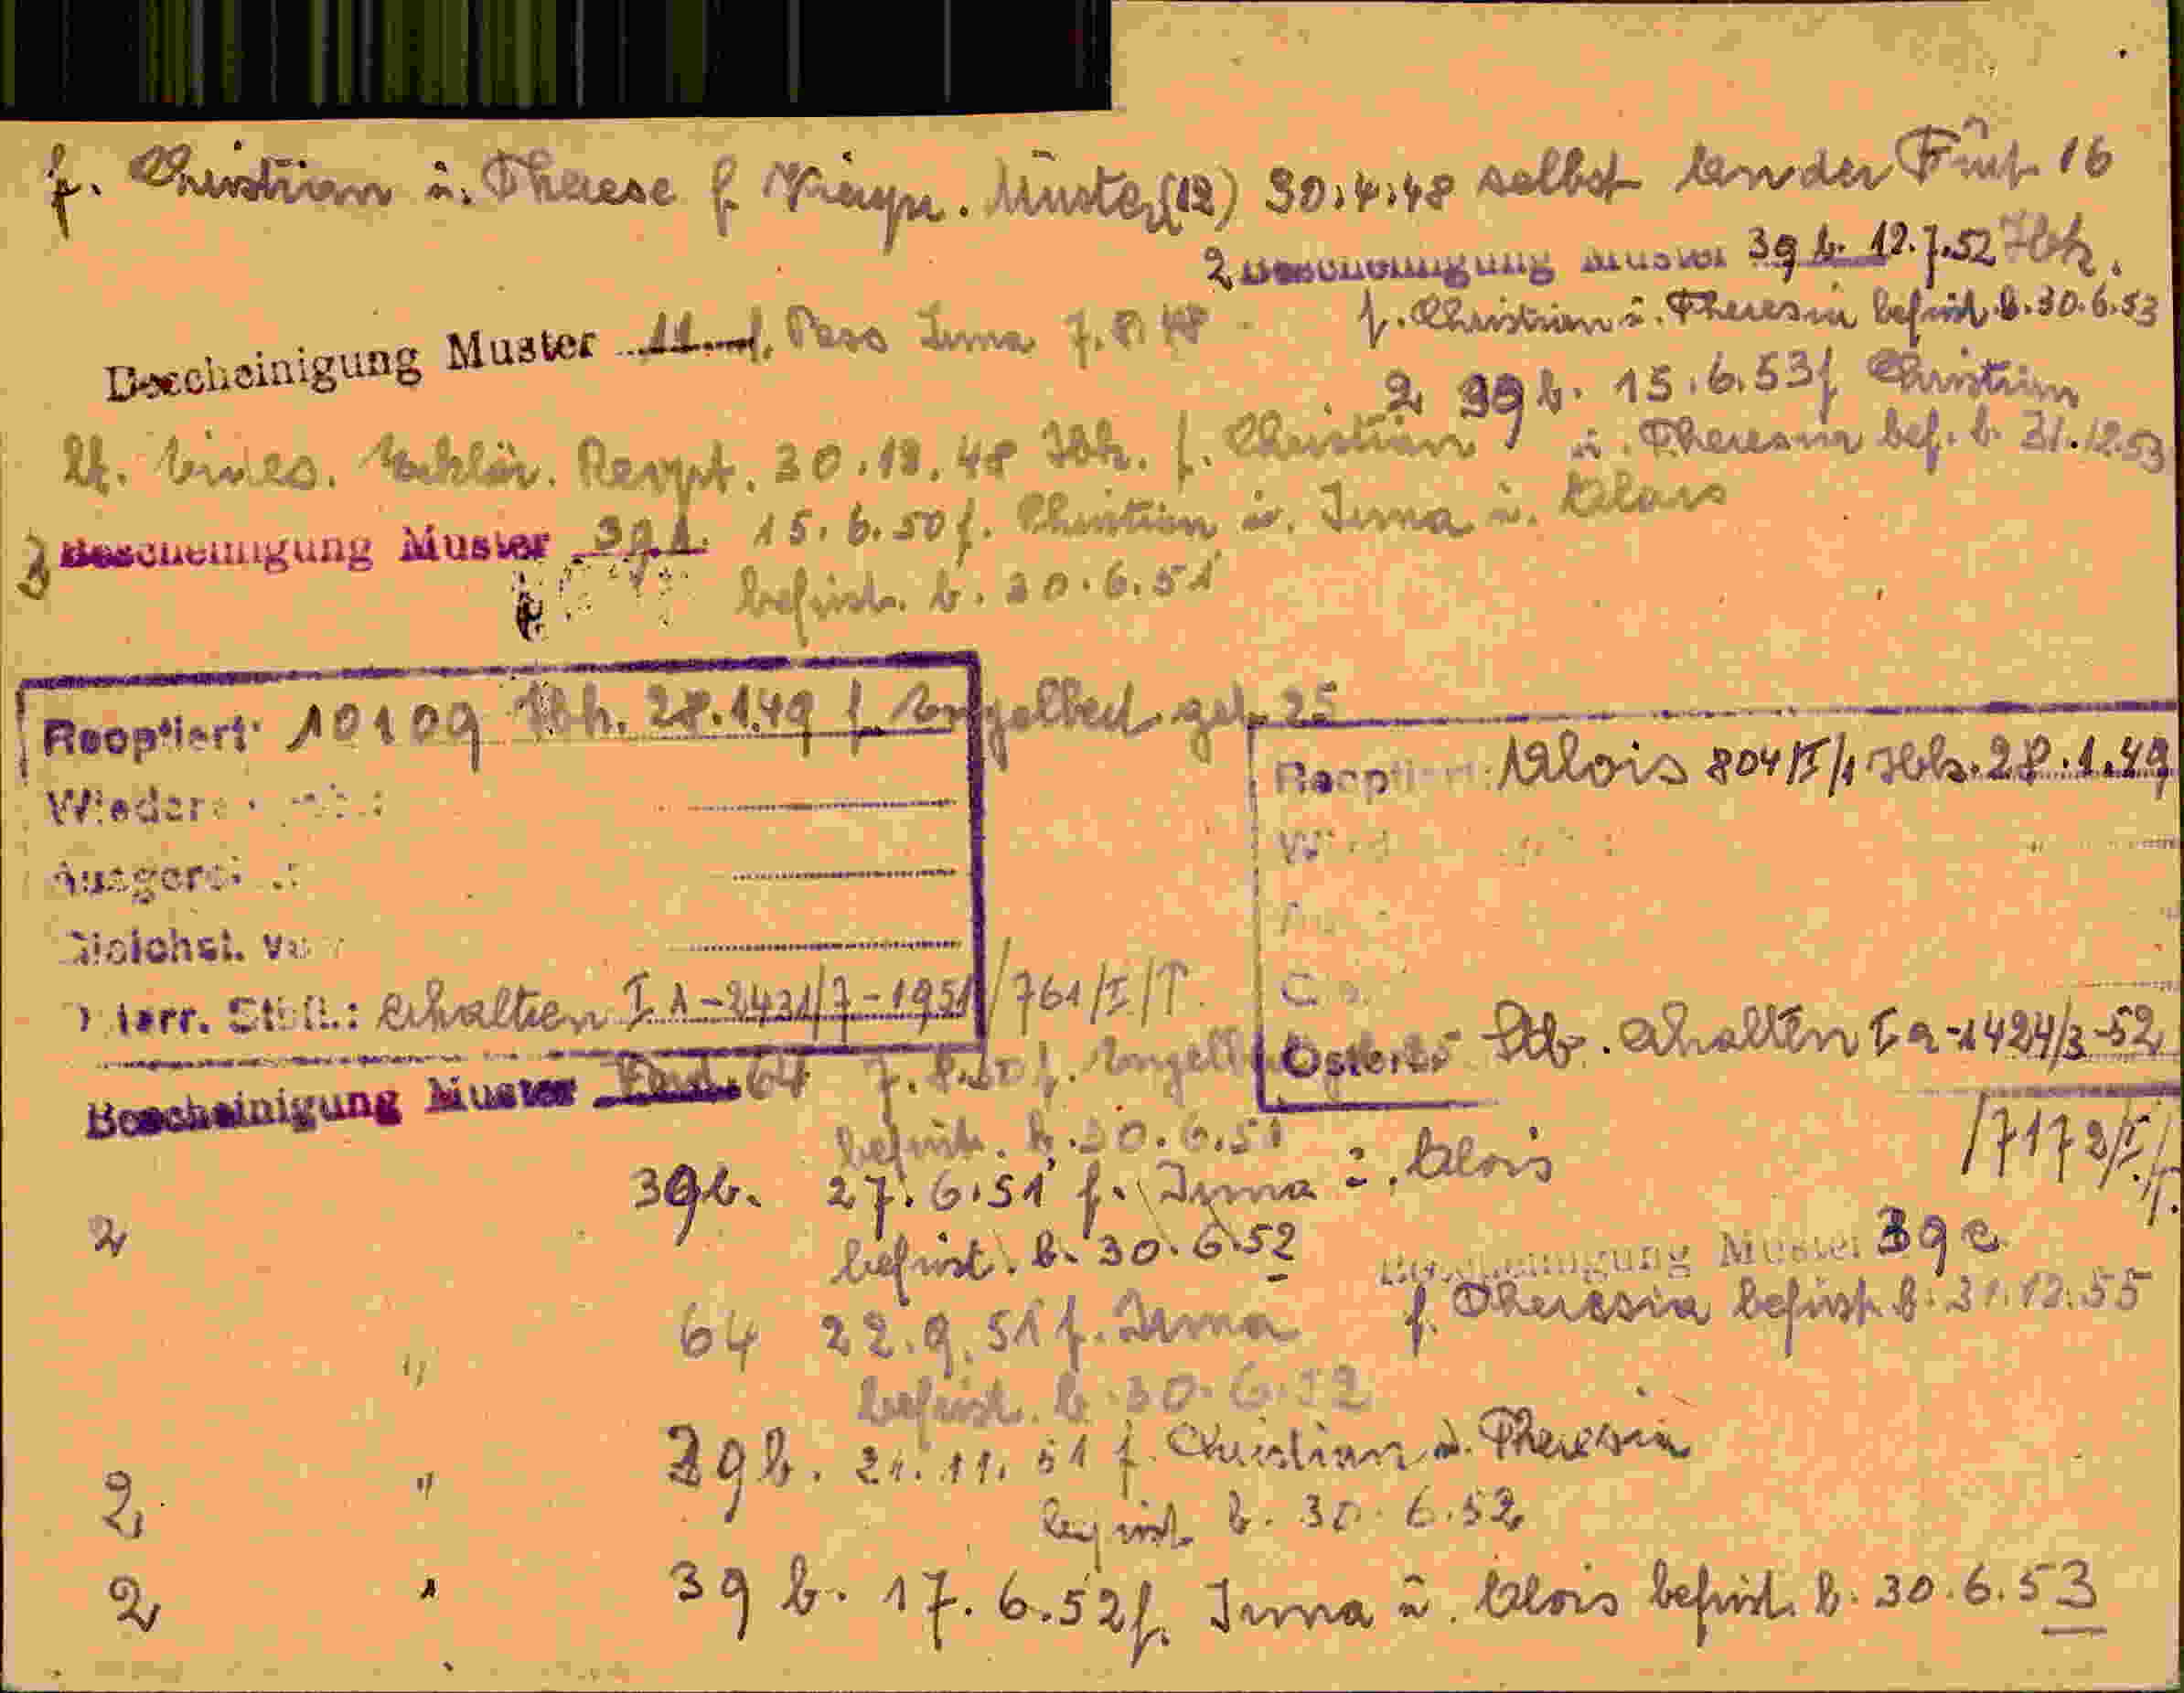 f. Christian u. Therese f. Muster (12) 30.4.48 selbst 16
2 Bescheinigung Muster 39 b. 12.7.52 Ibk.
f. Christian u. Theresia befrist. b. 30.6.53
Bescheinigung Muster 11 f. Pass Irma 7.8.48
2 39 b. 15.6.53 f. Christian
u. Theresia bef. b. 31.12.53
lt. Reopt. 30.12.48 Ibk. f. Christian
3 Bescheinigung Muster 39 15.6.50 f. Christian u. Irma u. Alois
befrist. b. 30.6.51
Reoptiert: 10109 Ibk. 28.1.49 f. Engelbert geb. 25
Österr. Stb.: erhalten I A-2431/7-1951/761/I/T.
Reoptiert: Alois 804/I/1 Ibk. 28.1.49
Österr. Stb. erhalten I a-1424/3-52
/7172/I/T.
Bescheinigung Muster 64 f. Engelbert
befrist. b. 30.6.51
2 39 b. 27.6.51 f. Irma u. Alois
befrist. b. 30.6.52
" 64 22.9.51 f. Irma
befrist. b. 30.6.52
Bescheinigung Muster 39 c
f. Theresia befrist. b. 31.12.55
2 " 39 b. 21.11.51 f. Christian u. Theresia
befrist. b. 30.6.52
2 " 39 b. 17.6.52 f. Irma u. Alois befrist. b. 30.6.53